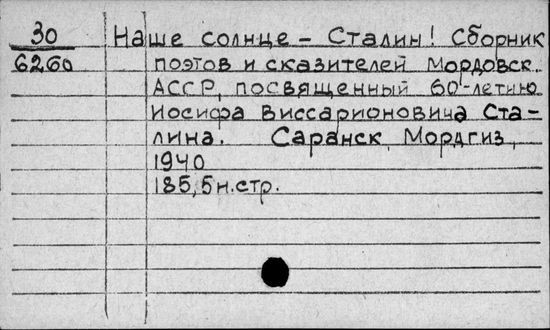 30 Наше солнце – Сталин! Сборник
6260 поэтов и сказителей Мордовск.
АССР, посвященный 60-летию
Иосифа Виссарионовича Ста-
лина. Саранск, Мордгиз,
1940
185, 5 н.стр.